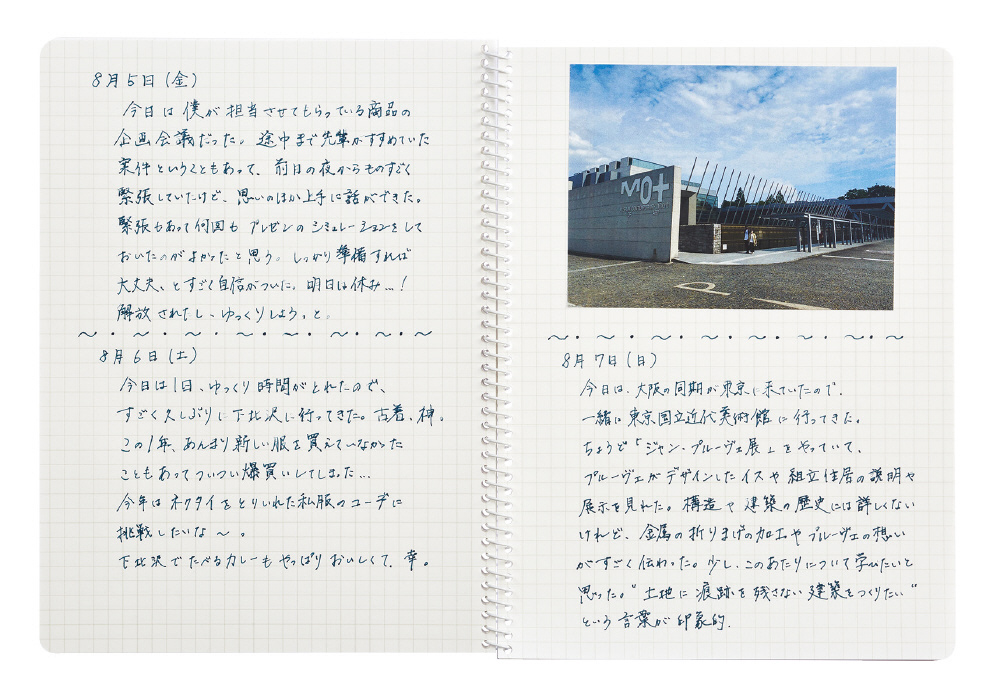 8月5日(金)
今日は僕が担当させてもらっている商品の
企画会議だった。途中まで先輩がすすめていた
案件ということもあって、前日の夜からものすごく
緊張していたけど、思いのほか上手に話ができた。
緊張もあって何回もプレゼンのシミュレーションをして
おいたのがよかったと思う。しっかり準備すれば
大丈夫、とすごく自信がついた。明日は休み…!
解放されたし、ゆっくりしよう、と。
8月6日(土)
今日は1日、ゆっくり時間がとれたので、
すごく久しぶりに下北沢に行ってきた。古着、神。
この1年、あんまり新しい服を買えていなかった
こともあってついつい爆買いしてしまった…
今年はネクタイをとりいれた私服のコーデに
挑戦したいな〜。
下北沢でたべるカレーもやっぱりおいしくて、幸。
MOT
8月7日(日)
今日は、大阪の同期が東京に来ていたので、
一緒に東京国立近代美術館に行ってきた。
ちょうど「ジャン・プルーヴェ展」をやっていて、
プルーヴェがデザインしたイスや組立住居の説明や
展示を見れた。構造や建築の歴史には詳しくない
けれど、金属の折りまげの加工やプルーヴェの想い
がすごく伝わった。少し、このあたりについて学びたいと
思った。"土地に痕跡を残さない建築をつくりたい"
という言葉が印象的.